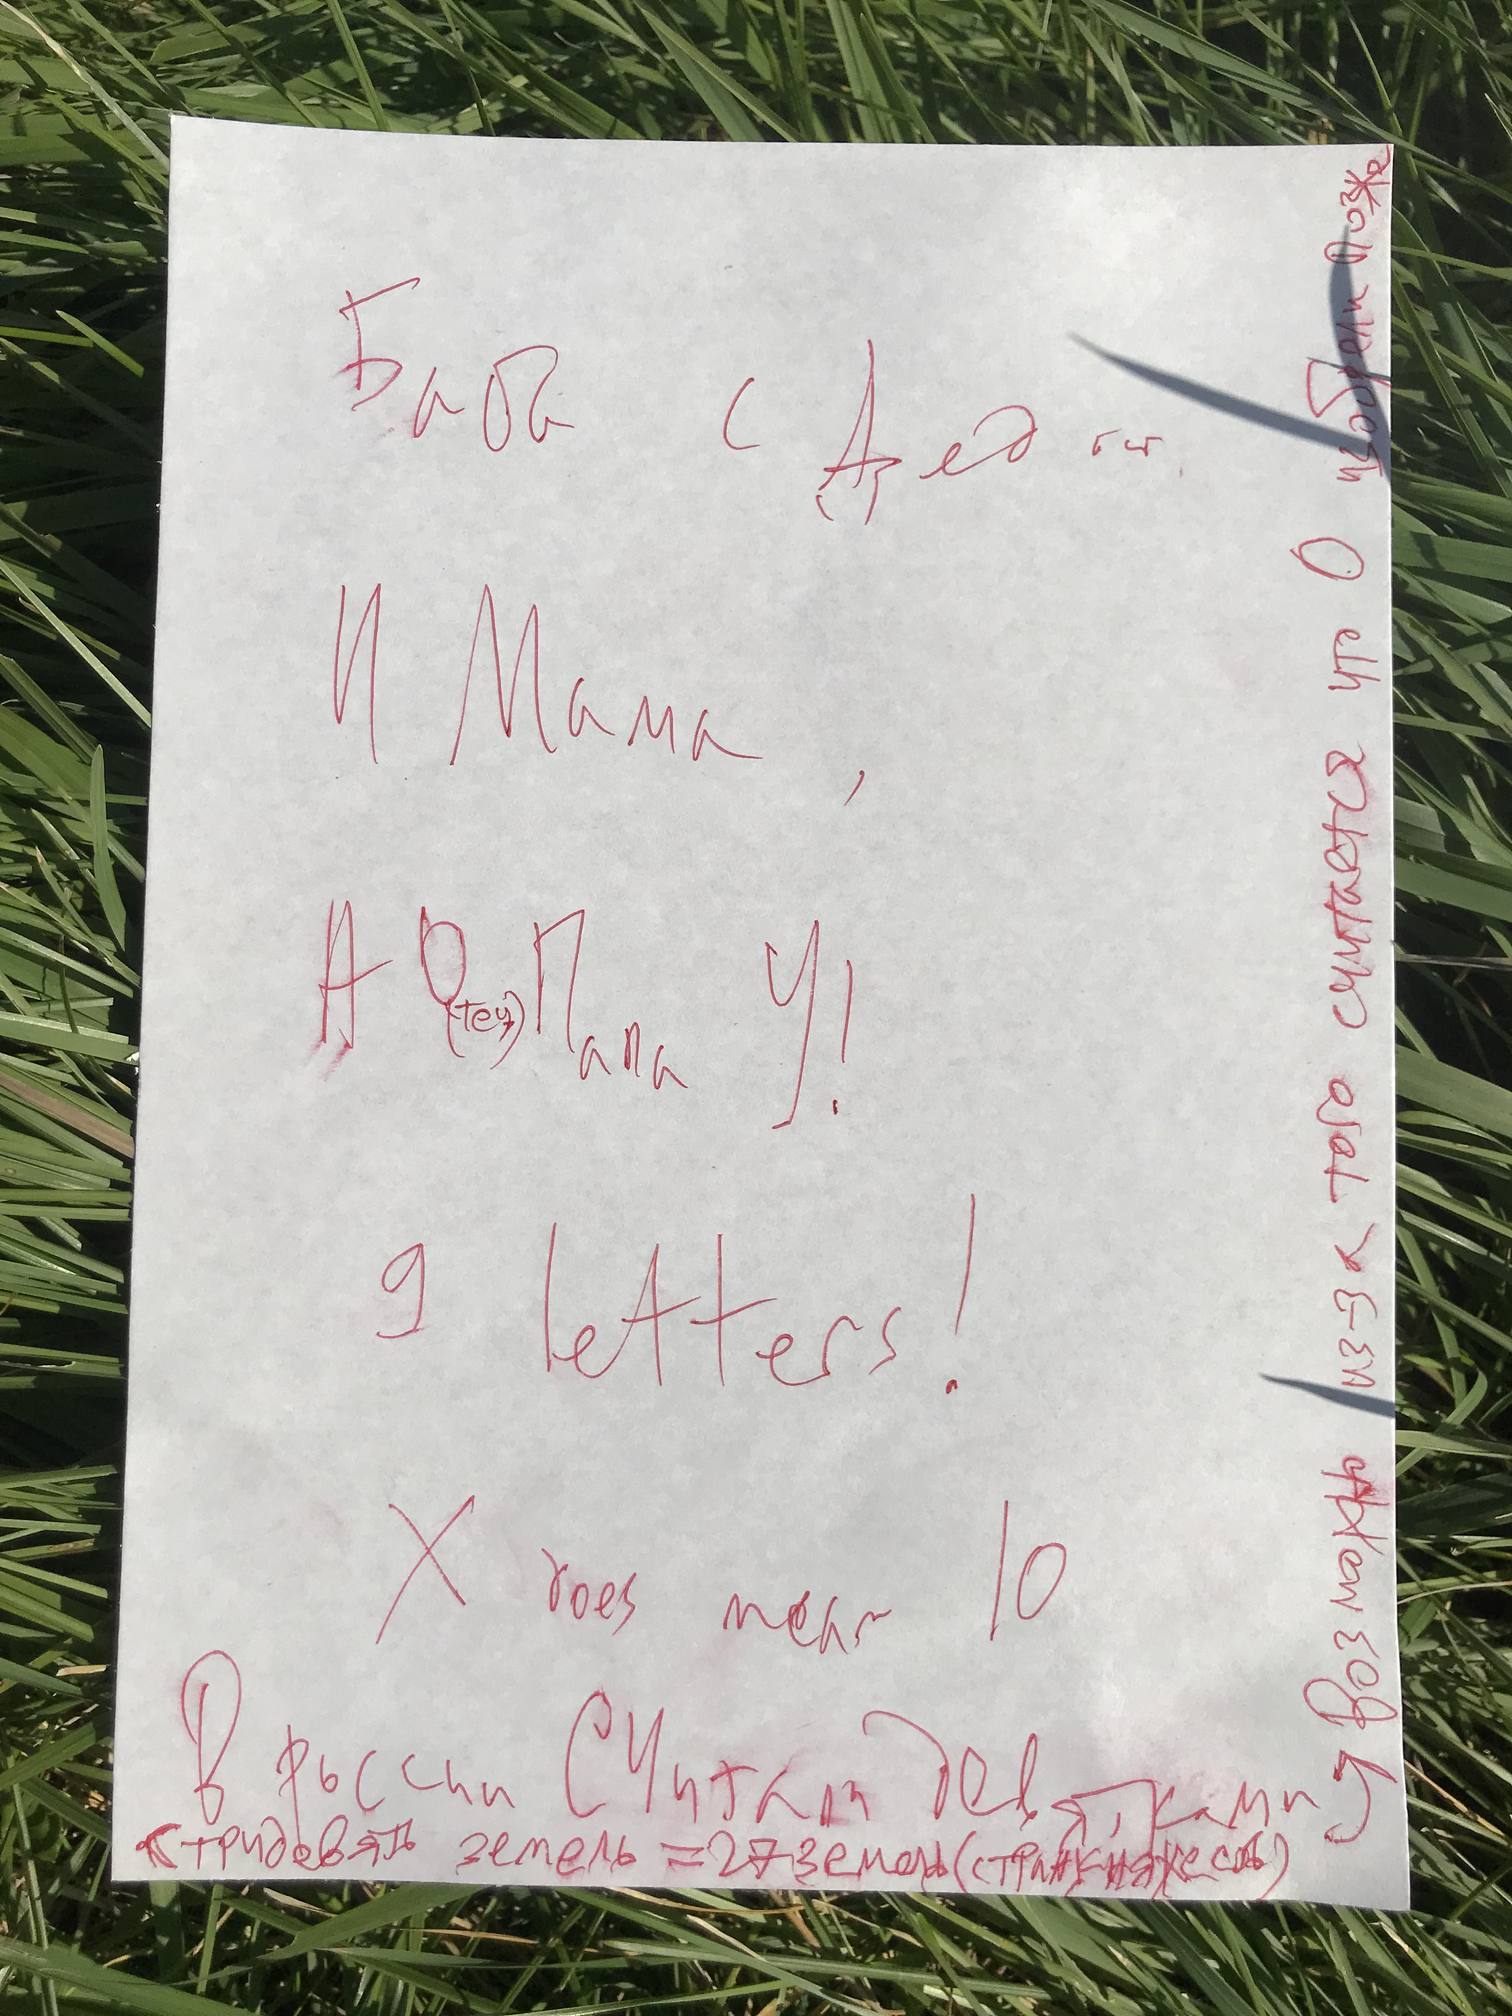 Баба с Дед
И Мама,
А О(тец) Папа У!
9 letters!
X roes near 10
В россии Считали девятками
тридевять земель = 27 земель (стран княжеств)
возможно из-з того считается что 0 изобрели позже